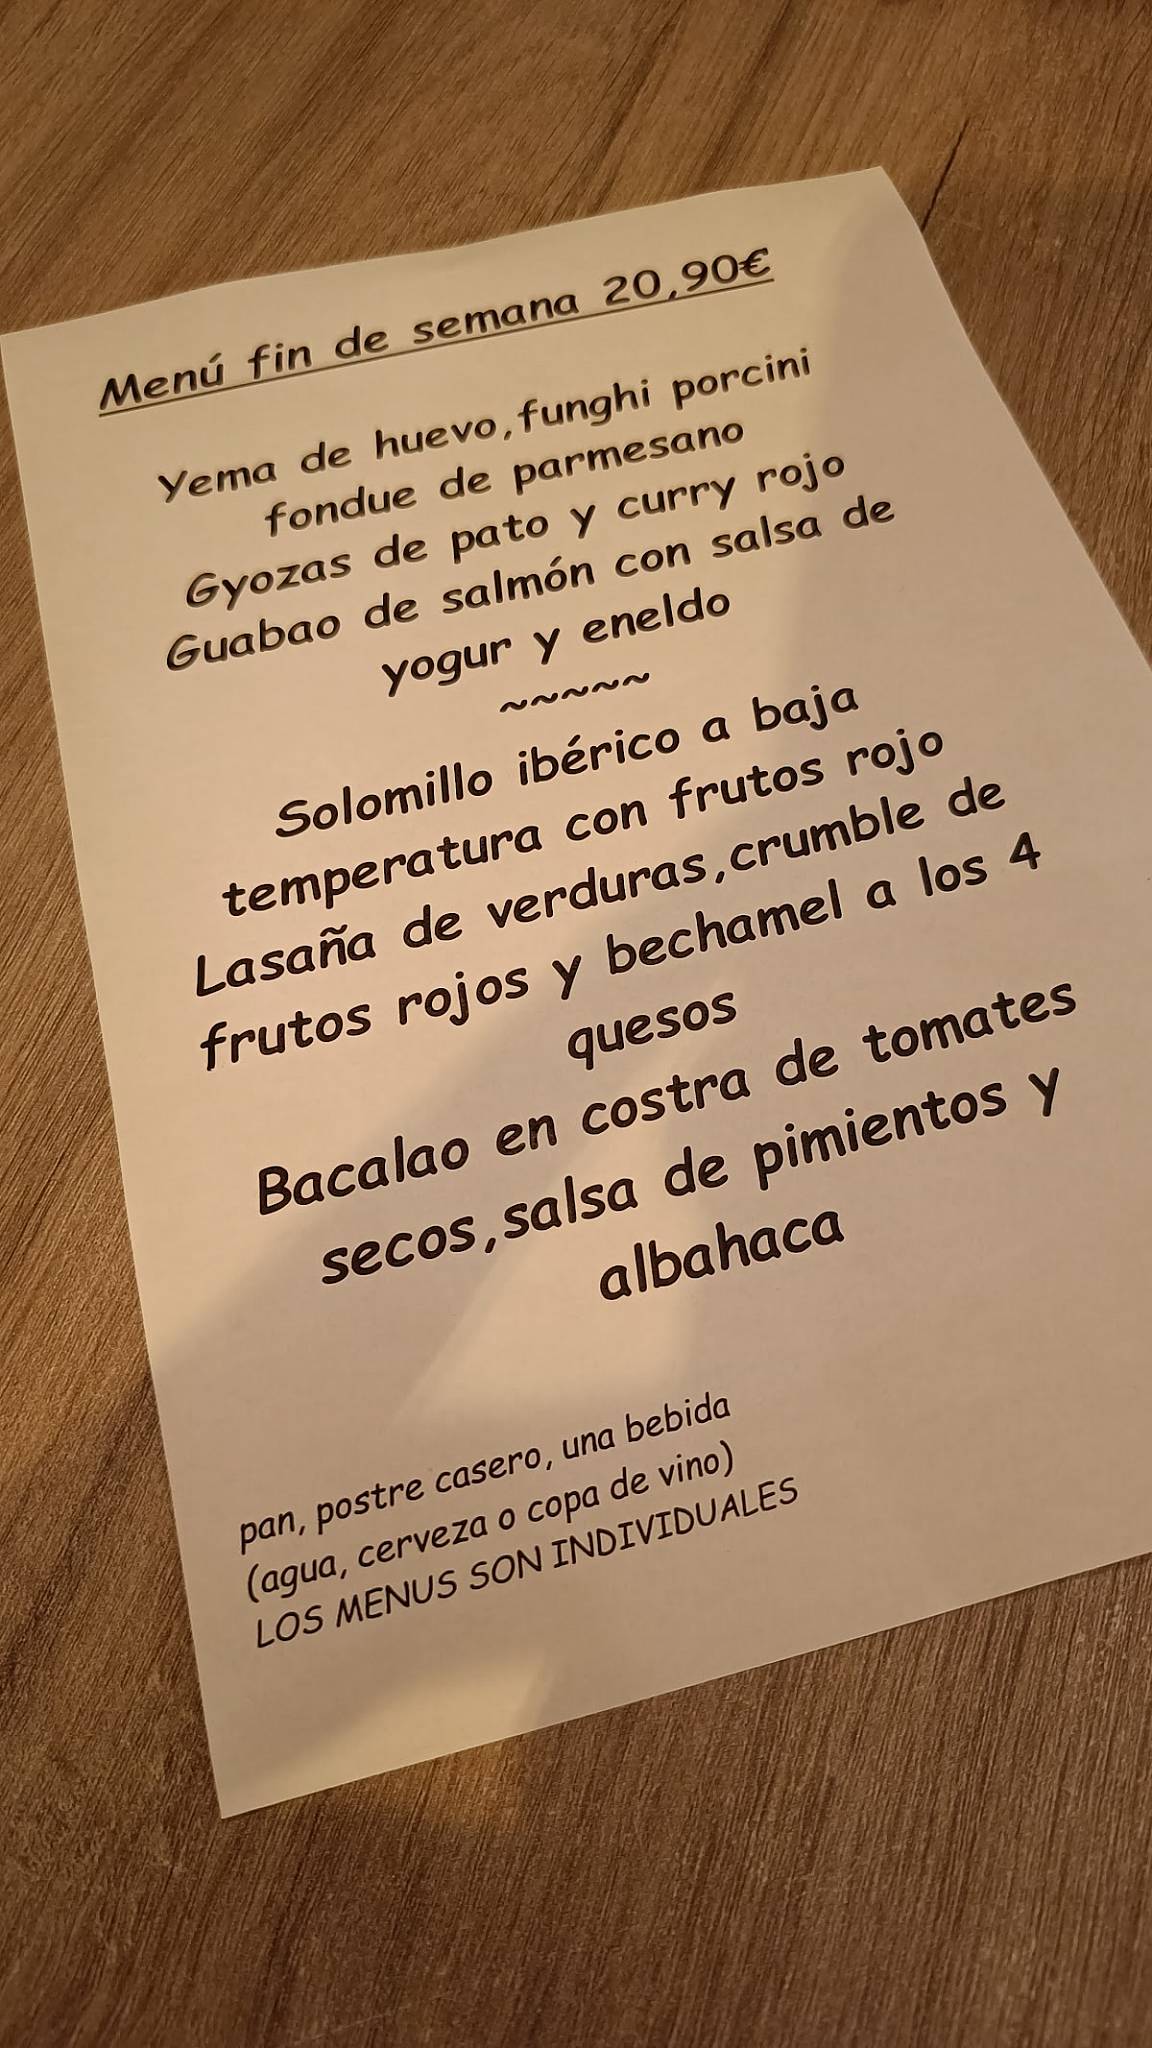 Menú fin de semana 20,90€
Yema de huevo,funghi porcini
fondue de parmesano
Gyozas de pato y curry rojo
Guabao de salmón con salsa de
yogur y eneldo
~~~~~
Solomillo ibérico a baja
temperatura con frutos rojo
Lasaña de verduras,crumble de
frutos rojos y bechamel a los 4
quesos
Bacalao en costra de tomates
secos,salsa de pimientos y
albahaca
pan, postre casero, una bebida
(agua, cerveza o copa de vino)
LOS MENUS SON INDIVIDUALES